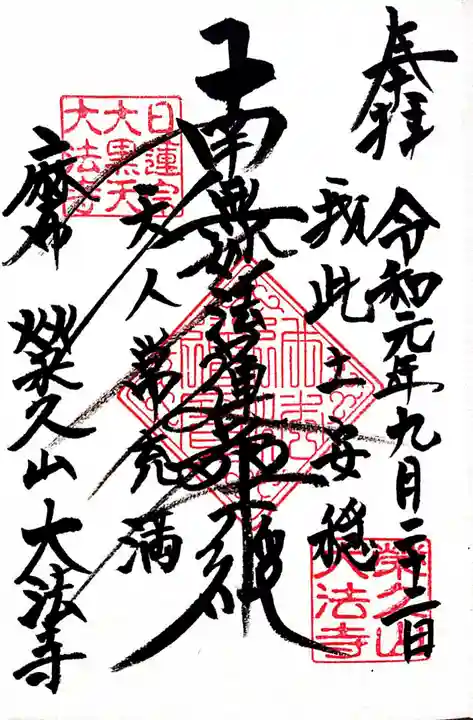 奉拝
令和元年九月二十二日
我此土安穏
南無妙法蓮華経
天人常充満
麻布 榮久山 大法寺
日蓮宗
大黒天
大法寺
榮久山
大法寺